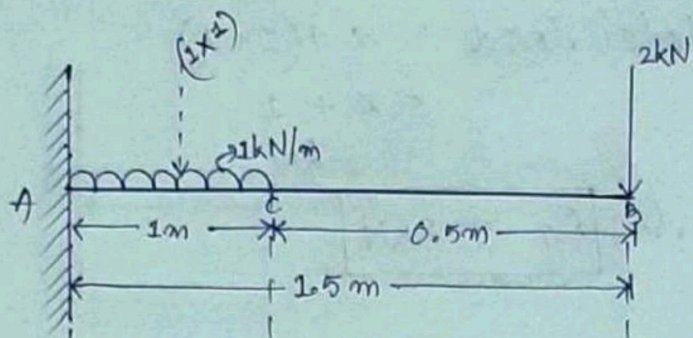 (1×1)
2kN
1kN/m
A
C
B
1m
0.5m
1.5 m